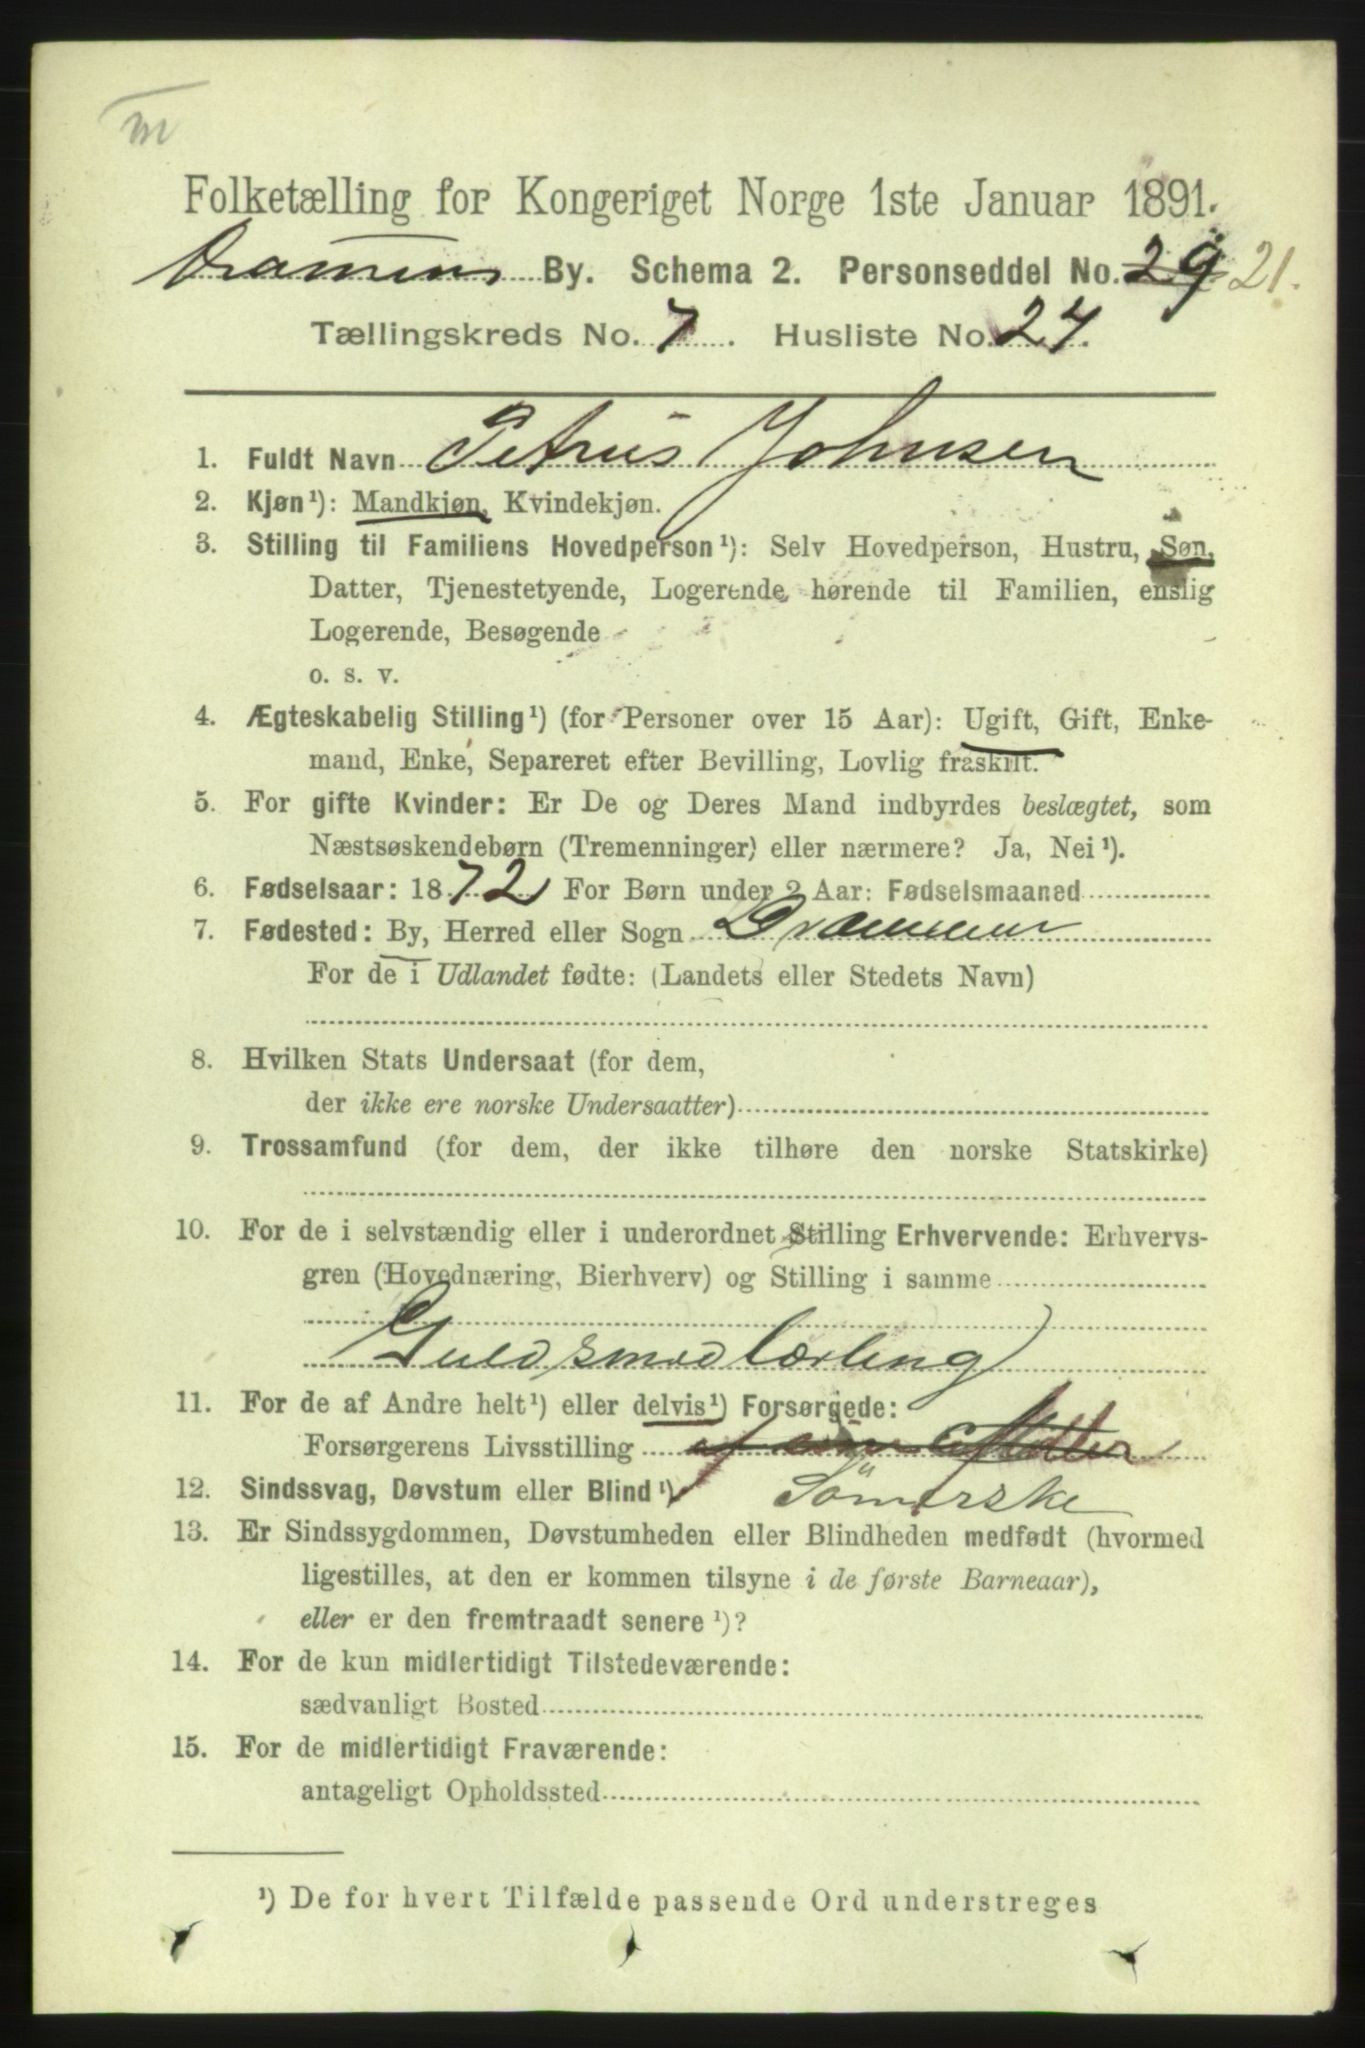 m
Folketælling for Kongeriget Norge 1ste Januar 1891.
Drammens By. Schema 2. Personseddel No. 29 21.
Tællingskreds No. 7. Husliste No. 27.
1. Fuldt Navn Petrus Johnsen
2. Kjøn¹): Mandkjøn, Kvindekjøn.
3. Stilling til Familiens Hovedperson¹): Selv Hovedperson, Hustru, Søn,
Datter, Tjenestetyende, Logerende hørende til Familien, enslig
Logerende, Besøgende
o. s. v.
4. Ægteskabelig Stilling¹) (for Personer over 15 Aar): Ugift, Gift, Enke-
mand, Enke, Separeret efter Bevilling, Lovlig fraskilt.
5. For gifte Kvinder: Er De og Deres Mand indbyrdes beslægtet, som
Næstsøskendebørn (Tremenninger) eller nærmere? Ja, Nei¹).
6. Fødselsaar: 1872 For Børn under 2 Aar: Fødselsmaaned
7. Fødested: By, Herred eller Sogn Drammen
For de i Udlandet fødte: (Landets eller Stedets Navn)
8. Hvilken Stats Undersaat (for dem,
der ikke ere norske Undersaatter)
9. Trossamfund (for dem, der ikke tilhøre den norske Statskirke)
10. For de i selvstændig eller i underordnet Stilling Erhvervende: Erhvervs-
gren (Hovednæring, Bierhverv) og Stilling i samme
Guldsmedlærling
11. For de af Andre helt¹) eller delvis¹) Forsørgede:
Forsørgerens Livsstilling af Moder
12. Sindssvag, Døvstum eller Blind¹) Sömerske
13. Er Sindssygdommen, Døvstumheden eller Blindheden medfødt (hvormed
ligestilles, at den er kommen tilsyne i de første Barneaar),
eller er den fremtraadt senere¹)?
14. For de kun midlertidigt Tilstedeværende:
sædvanligt Bosted
15. For de midlertidigt Fraværende:
antageligt Opholdssted
¹) De for hvert Tilfælde passende Ord understreges